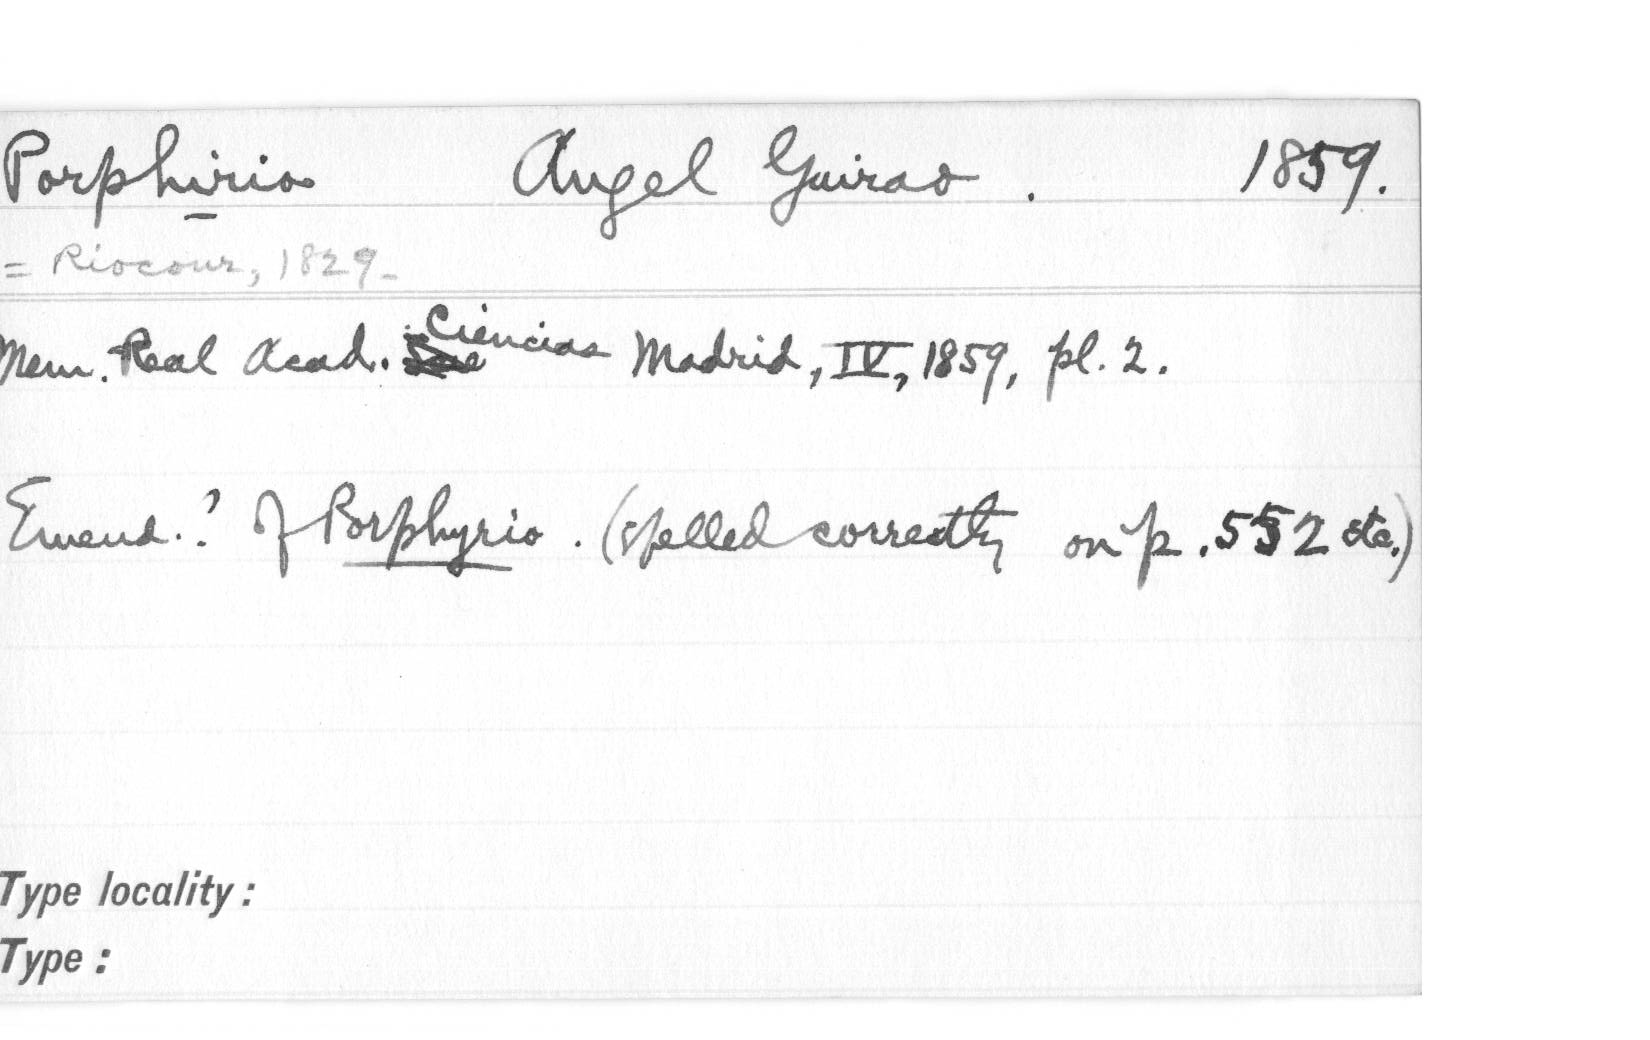 Porphirio Angel Guirao. 1859.
= Riocour, 1829.
Mem. Real Acad. Ciencias Madrid, IV, 1859, pl. 2.
Emend.? of Porphyrio. (spelled correctly on p. 552 etc.)
Type locality:
Type: